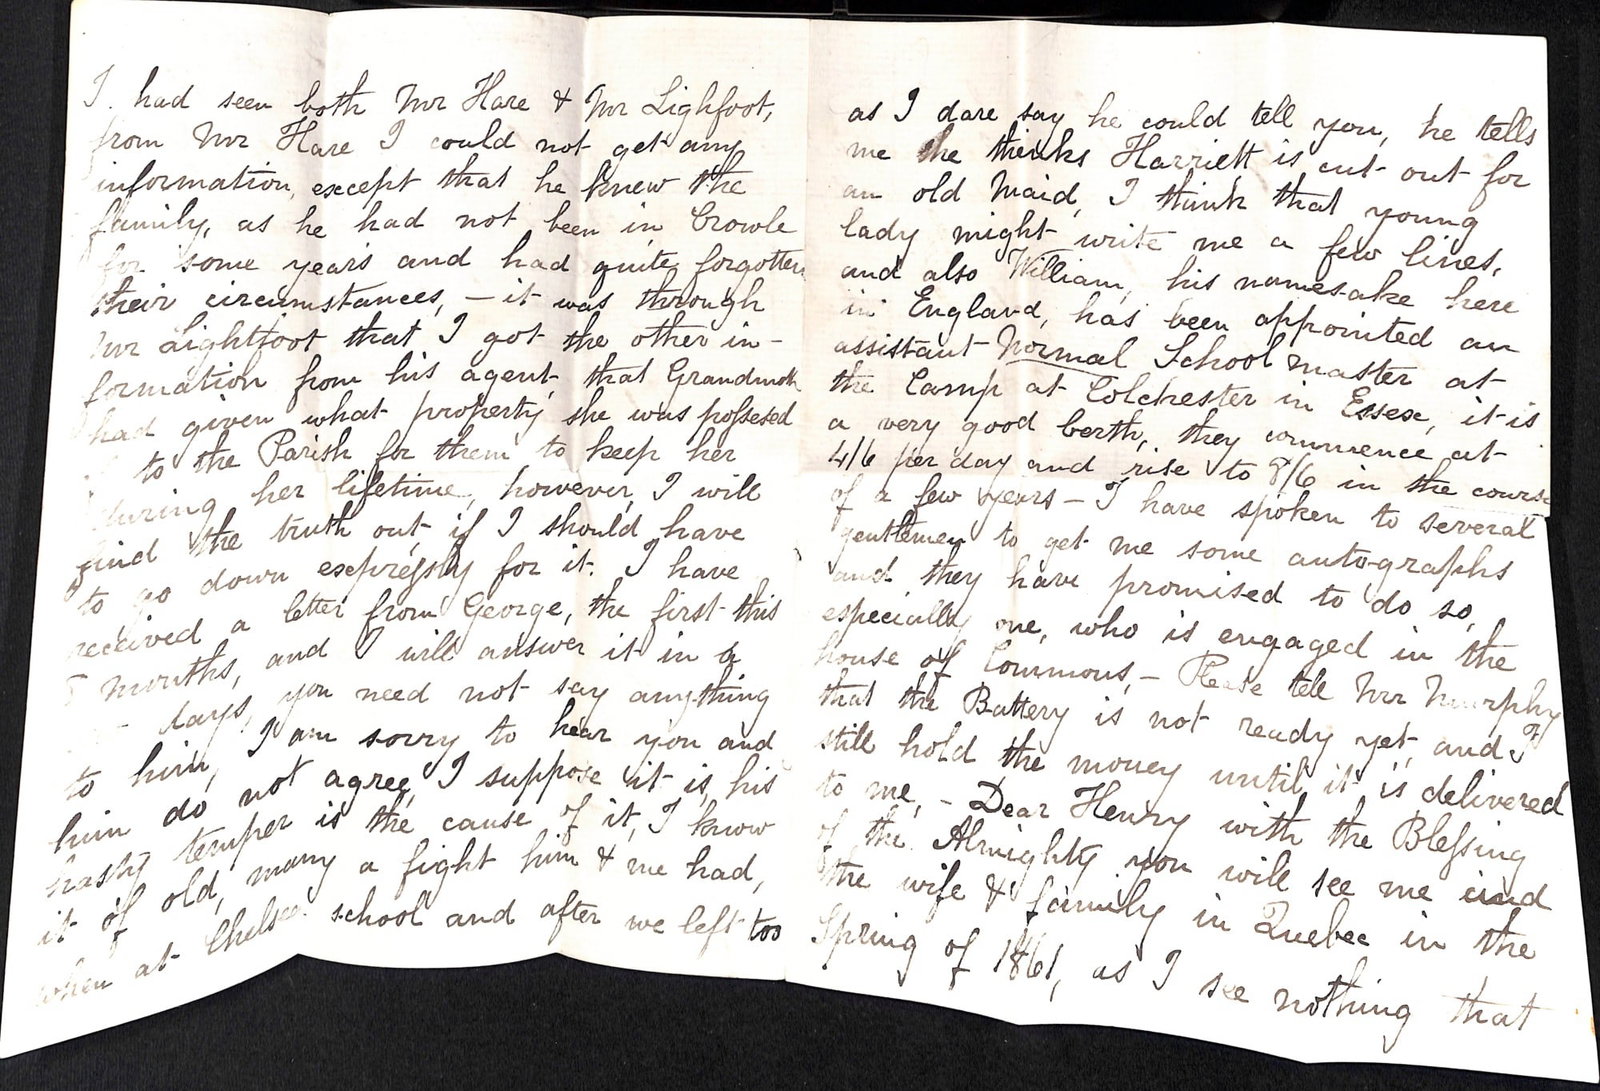 I had seen both Mr Hare & Mr Lighfoot,
from Mr Hare I could not get any
information, except that he knew the
family, as he had not been in Crowle
for some years and had quite forgotten
their circumstances, – it was through
Mr Lightfoot that I got the other in-
formation from his agent, that Grandmoth
had given what property she was possesed
to the Parish for them to keep her
during her lifetime, however, I will
find the truth out if I should have
to go down expressly for it. I have
received a letter from George, the first this
months, and I will answer it in a
days, you need not say anything
to him, I am sorry to hear you and
him do not agree, I suppose it is his
hasty temper is the cause of it, I know
it of old, many a fight him & me had,
when at Chelsea school and after we left too
as I dare say he could tell you, he tells
me he thinks Harriett is cut out for
an old Maid, I think that young
lady might write me a few lines,
and also William, his namesake here
in England, has been appointed an
assistant Normal School master at
the Camp at Colchester in Essex, it is
a very good berth, they commence at
4/6 per day and rise to 8/6 in the course
of a few years – I have spoken to several
gentlemen to get me some autographs
and they have promised to do so,
especially one, who is engaged in the
house of Commons, – Please tell Mr Murphy
that the Battery is not ready yet, and I
still hold the money until it is delivered
to me, – Dear Henry with the Blessing
of the Almighty you will see me and
the wife & family in Quebec in the
Spring of 1861, as I see nothing that